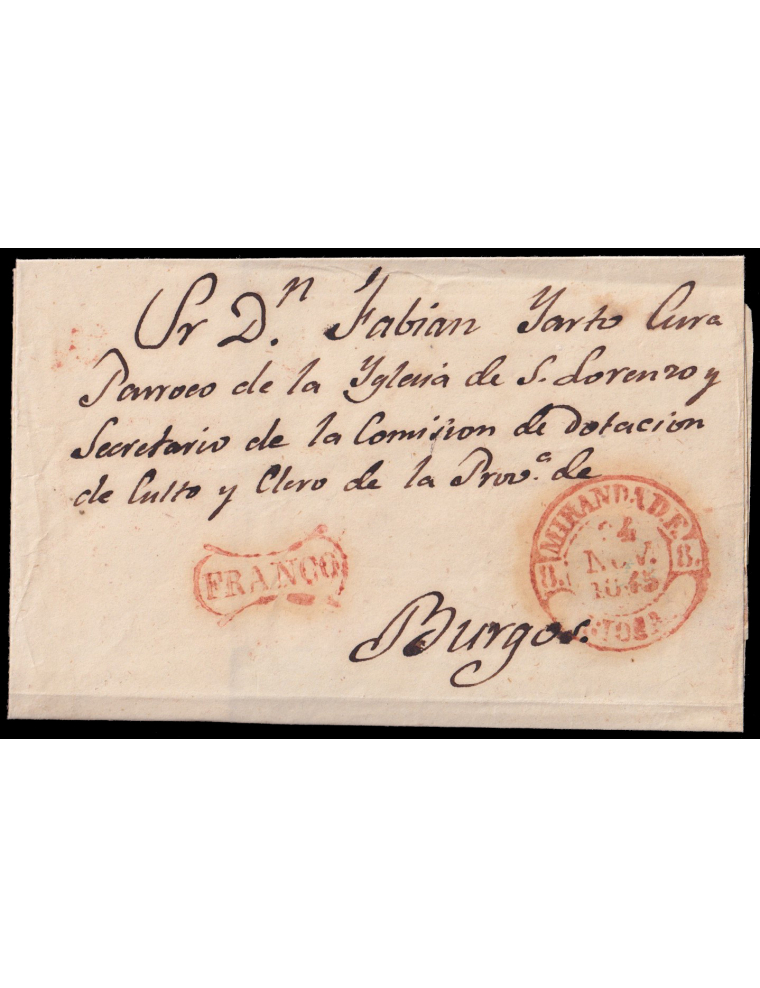 Sr D.n Fabian Yarto Cura
Parroco de la Yglesia de S. Lorenzo y
Secretario de la Comision de Dotacion
de Culto y Clero de la Prov.a de
Burgos.
FRANCO
MIRANDA DE
8. 8.
24
NOV.
1845